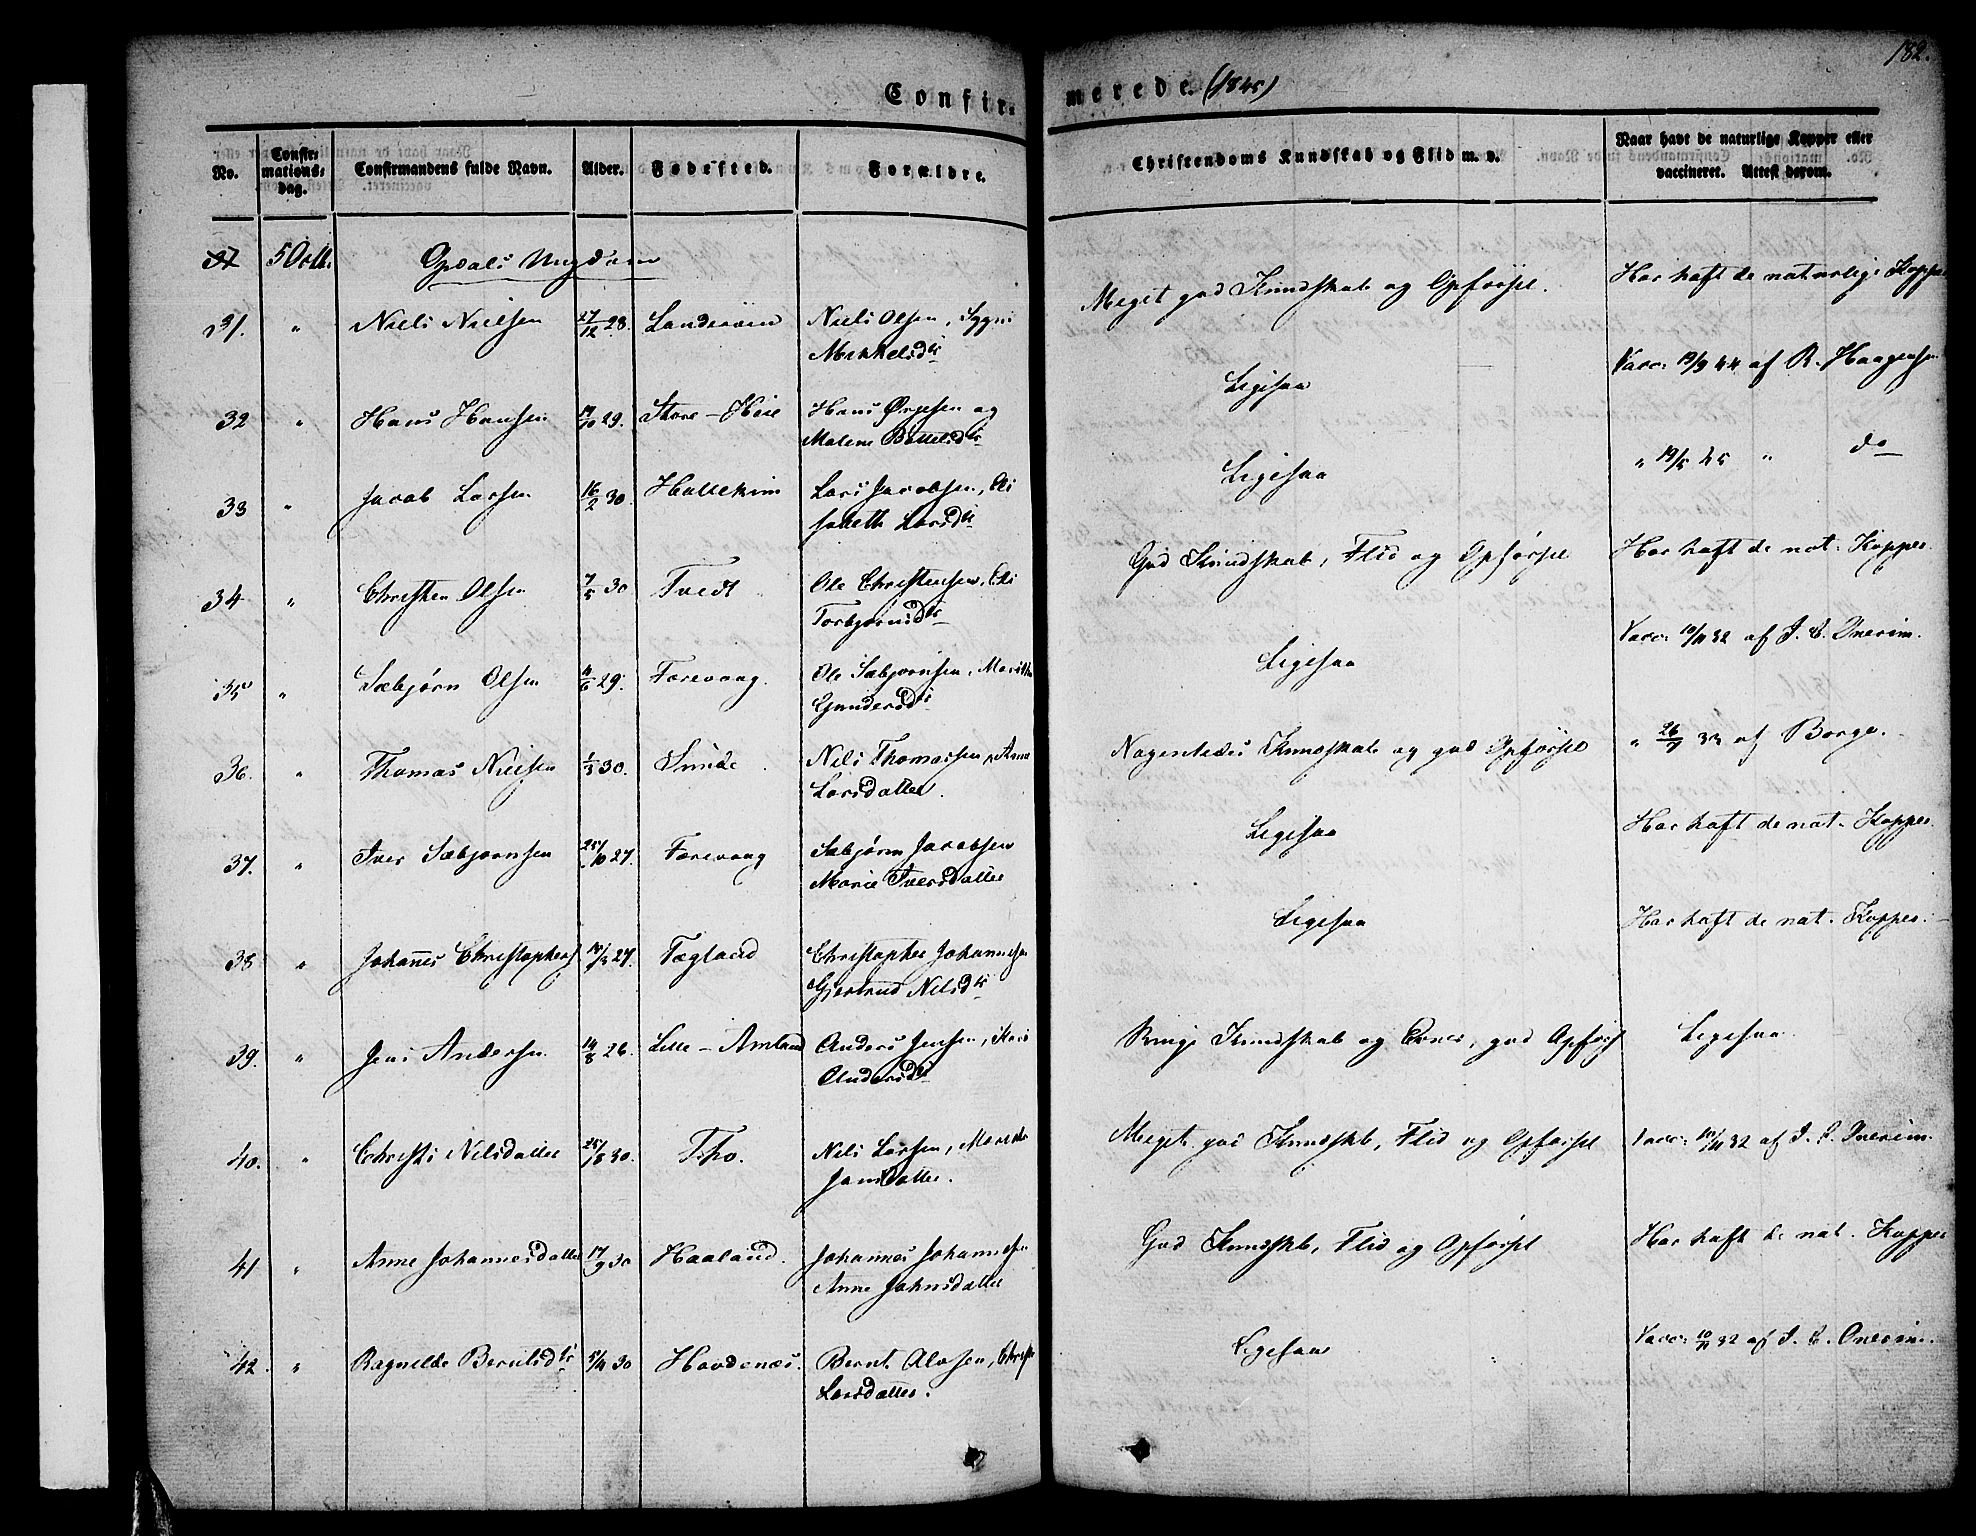 182.
Confir- merede. (1845)
No.
Confir-
mations-
dag.
Confirmandens fulde Navn.
Alder.
Fødested.
Forældre.
Christendoms Kundskab og Flid m. v.
Naar havt de naturlige Kopper eller
vaccineret. Attest derom.
5 Octb. Opdals Ungdom
31. " Niels Nielsen 27/12 28. Landerøen Niels Olsen, Sygni
Mikkelsdtr
Meget god Kundskab og Opførsel. Har haft de naturlige Kopper
32 " Hans Hansen 14/10 29. Store-Heie Hans Ørjesen og
Malene Bottelsdtr
Ligesaa Vacc: 19/9 44 af R. Haagensen
33 " Jacob Larsen 16/2 30. Hallekim Lars Jacobsen, Eli
sabeth Larsdtr
Ligesaa " 19/5 45 " do
34 " Christen Olsen 7/5 30 Tvedt Ole Christensen, Eli
Torbjørnsdtr
God Kundskab, Flid og Opførsel Har haft de nat. Kopper.
35 " Sæbjørn Olsen 11/6 29. Farevaag. Ole Sæbjørnsen, Maritha
Gundersdtr
Ligesaa Vacc: 10/11 32 af J. C. Onerim.
36. " Thomas Nielsen 1/3 30. Sunde. Nils Thomassen, Anna
Larsdatter.
Nogenledes Kundskab og god Opførsel " 26/7 33 af Borge.
37. " Iver Sæbjørnsen 25/10 27. Farevaag Sæbjørn Jacobsen
Marie Iversdatter
Ligesaa Har haft de nat. Kopper.
38 " Johannes Christophers 18/3 27. Tegland Christopher Johannesen
Gjertrud Nilsdtr
Ligesaa Har haft de nat. Kopper.
39. " Jens Andersen 14/8 26. Lille-Amland Anders Jensen, Kari
Andersdtr
Ringe Kundskab og Evner, god Opførs Ligesaa
40. " Christi Nilsdatter 25/8 30. Tho. Nils Larsen, Maritha
Jansdatter.
Meget god Kundskb, Flid og Opførsel Vacc: 10/11 32 af J. C. Onerim.
41 " Anne Johannesdatter 17/9 30 Haaland. Johannes Johannesen
Anne Johnsdatter
God Kundskb, Flid og Opførsel Har haft de nat. Kopper
42. " Ragnilde Berntsdtr 5/4 30 Havdenæs. Bernt Olsen, Christi
Larsdatter.
Ligesaa Vacc: 10/11 32 af J. C. Onerim.